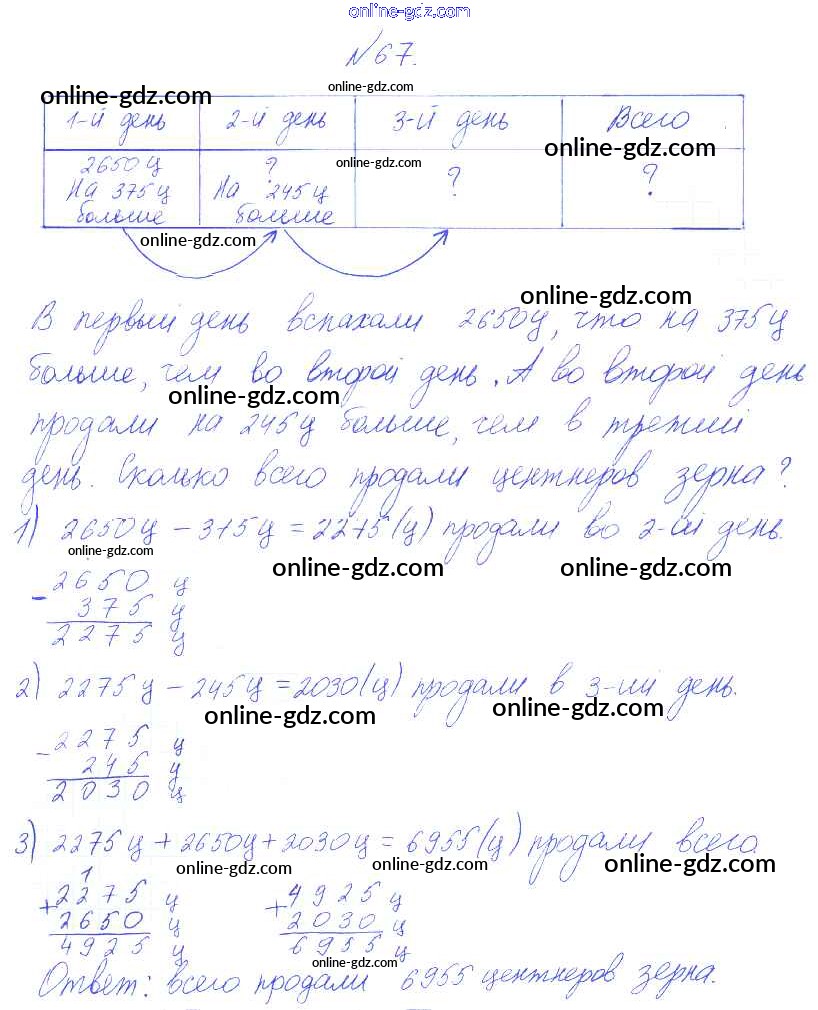 online-gdz.com
№67.
online-gdz.com
online-gdz.com
1-й день 2-й день 3-й день Всего
online-gdz.com
online-gdz.com
2650 ц ? ? ?
на 375 ц на 245 ц
больше больше
online-gdz.com
online-gdz.com
В первый день вспахали 2650 ц, что на 375 ц
больше, чем во второй день. А во второй день
online-gdz.com
online-gdz.com
продали на 245 ц больше, чем в третий
день. Сколько всего продали центнеров зерна?
1) 2650 ц - 375 ц = 2275 (ц) продали во 2-ой день.
online-gdz.com
online-gdz.com online-gdz.com
- 2650 ц
375 ц
2275 ц
2) 2275 ц - 245 ц = 2030 (ц) продали в 3-ий день.
online-gdz.com online-gdz.com
- 2275 ц
online-gdz.com online-gdz.com
245 ц
2030 ц
3) 2275 ц + 2650 ц + 2030 ц = 6955 (ц) продали всего
online-gdz.com online-gdz.com online-gdz.com
1
+ 2275 ц + 4925 ц
2650 ц 2030 ц
4925 ц 6955 ц
online-gdz.com
Ответ: всего продали 6955 центнеров зерна.